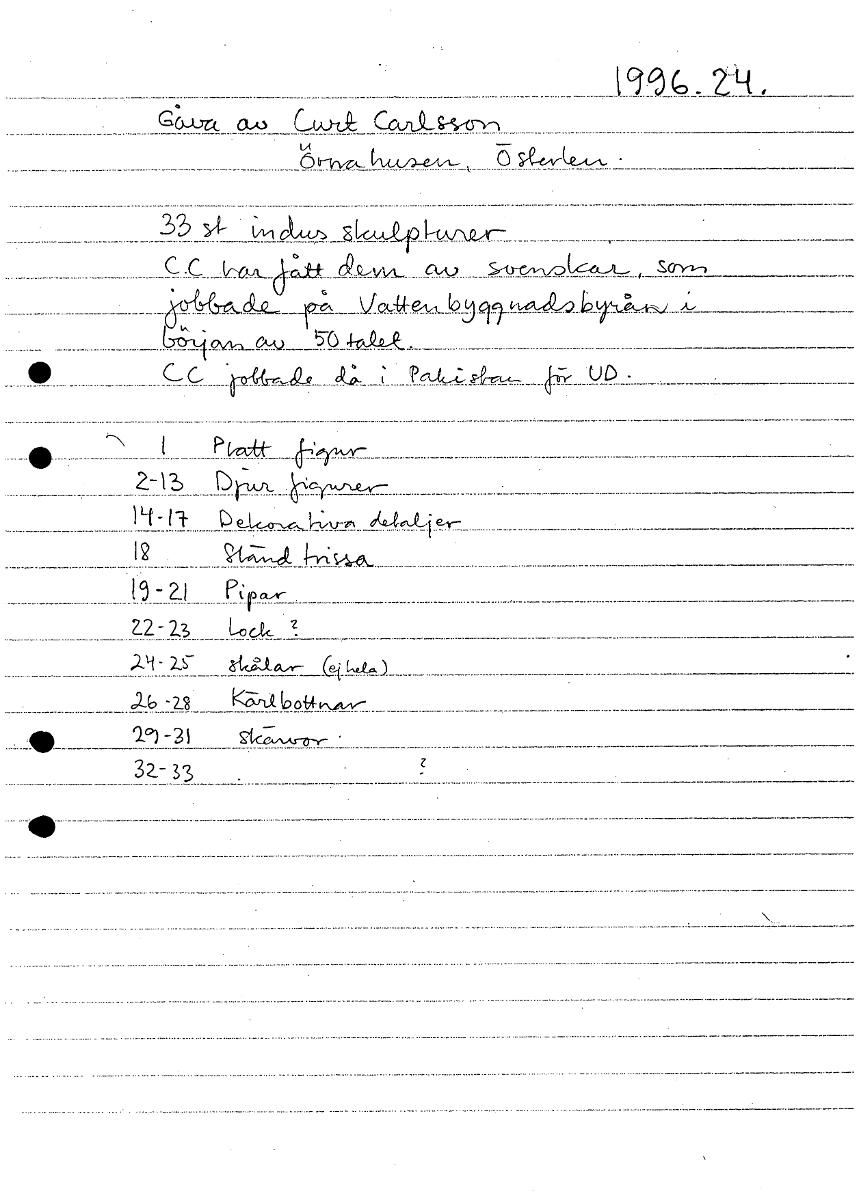 1996.24.
Gåva av Curt Carlsson
Örnahusen, Österlen.
33 st indus skulpturer
C.C har fått dem av svenskar, som
jobbade på Vattenbyggnadsbyrån i
början av 50 talet.
CC jobbade då i Pakistan för UD.
1 Platt figur
2-13 Djur figurer
14-17 Dekorativa detaljer
18 Sländ trissa
19-21 Pipar
22-23 Lock ?
24-25 skålar (ej hela)
26-28 Kärlbottnar
29-31 skärvor.
32-33 ?